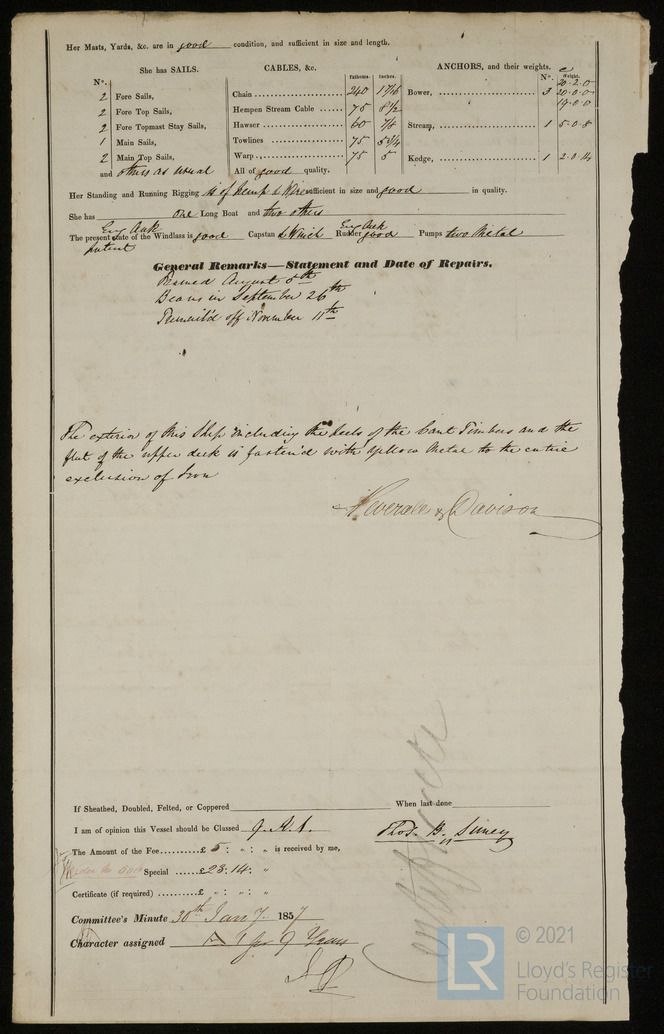 Her Masts, Yards, &c. are in good condition, and sufficient in size and length.
She has SAILS. CABLES, &c. ANCHORS, and their weights.
Nº. Fathoms. Inches. Nº. Weight.
2 Fore Sails, Chain 240 1 7/16 Bower, 3 20.2.0
20.0.0
2 Fore Top Sails, Hempen Stream Cable 75 8 1/2 19.0.0
2 Fore Topmast Stay Sails, Hawser 60 7/8 Stream, 1 5.0.8
1 Main Sails, Towlines 75
2 Main Top Sails, Warp 75 5 Kedge, 1 2.0.14
and others as usual All of good quality.
Her Standing and Running Rigging is of Hemp & Wire sufficient in size and good in quality.
She has one Long Boat and two others
Eng Oak Eng Oak
The present state of the Windlass is good Capstan & Winch Rudder good Pumps two Metal
patent
General Remarks—Statement and Date of Repairs.
August 8th
Beams in September 26th
off November 11th
The exterior of this Ship including the heels of the Cant Timbers and the
flat of the upper deck is fasten'd with Yellow Metal to the entire
exclusion of Iron
& Davison
If Sheathed, Doubled, Felted, or Coppered When last done
I am of opinion this Vessel should be Classed 9.A.1.
The Amount of the Fee £ 5 : " : " is received by me,
Thos. B. Simey
Special £ 23.14. "
Certificate (if required) £ " : " : "
Committee's Minute 30th Jany. 1857
Character assigned A 1 for 9 Years
© 2021
LR
Lloyd's Register
Foundation